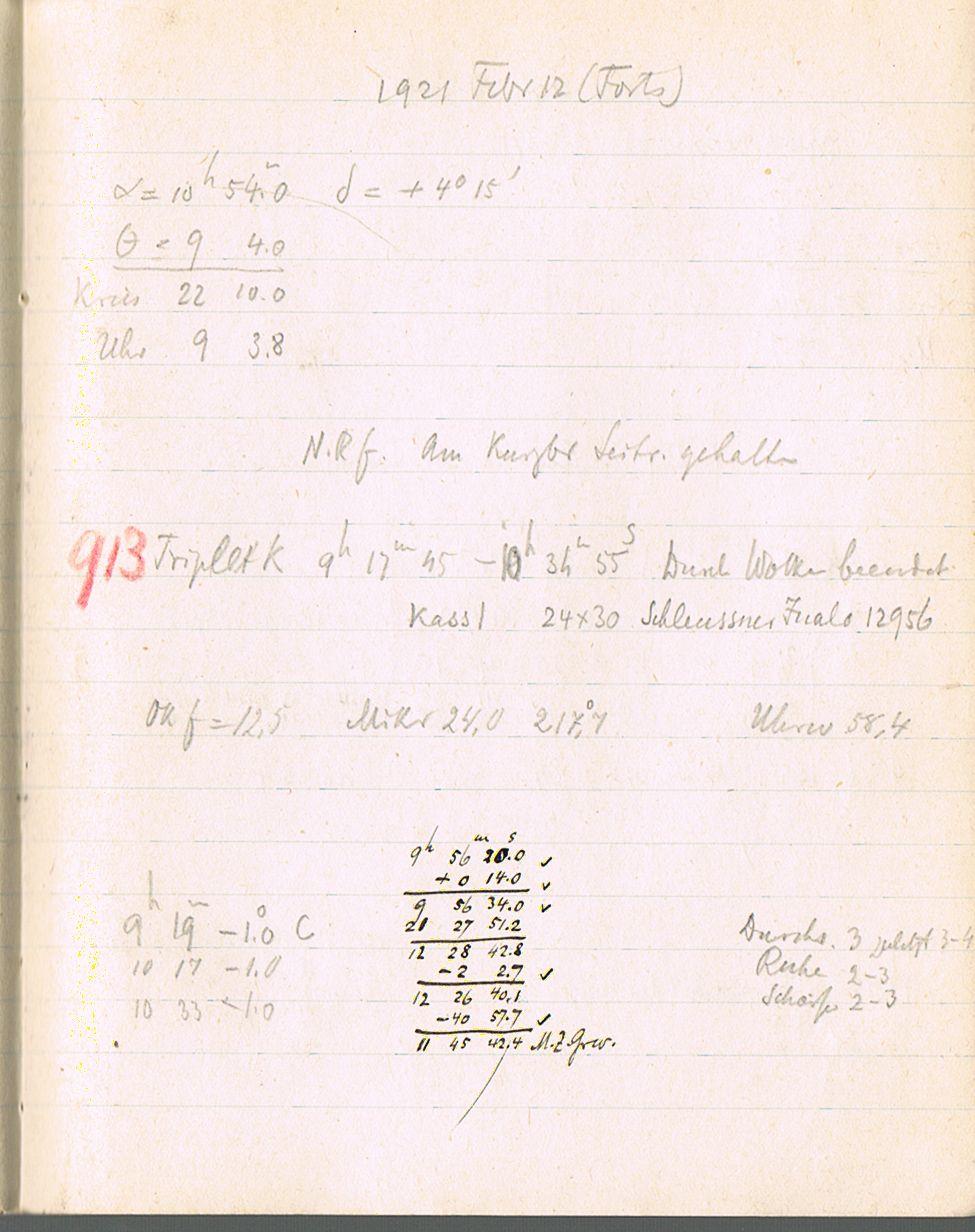 1921 Febr 12 (Forts)
α = 10h 54m.0 δ = + 4° 15'
θ = 9 4.0
Kreis 22 10.0
Uhr 9 3.8
N.R f. Am gehalten
913 Triplet K 9h 17m 45 – 10h 34m 55s Durch Wolken beendet
Kass 1 24×30 Schleussner Inalo 12956
Ok f = 12,5 Mikr 24,0 217°,7 Uhrw 58,4
9h 56m 20.0s ✓
+ 0 14.0 ✓
9 56 34.0 ✓
9h 19m –1.°0 C
21 27 51.2
Durchs. 3 zuletzt 3–4
12 28 42.8
10 17 –1.0
–2 2.7 ✓
Ruhe 2–3
10 33 –1.0
12 26 40.1
Schärfe 2–3
–40 57.7 ✓
11 45 42.4 M.Z. Grw.